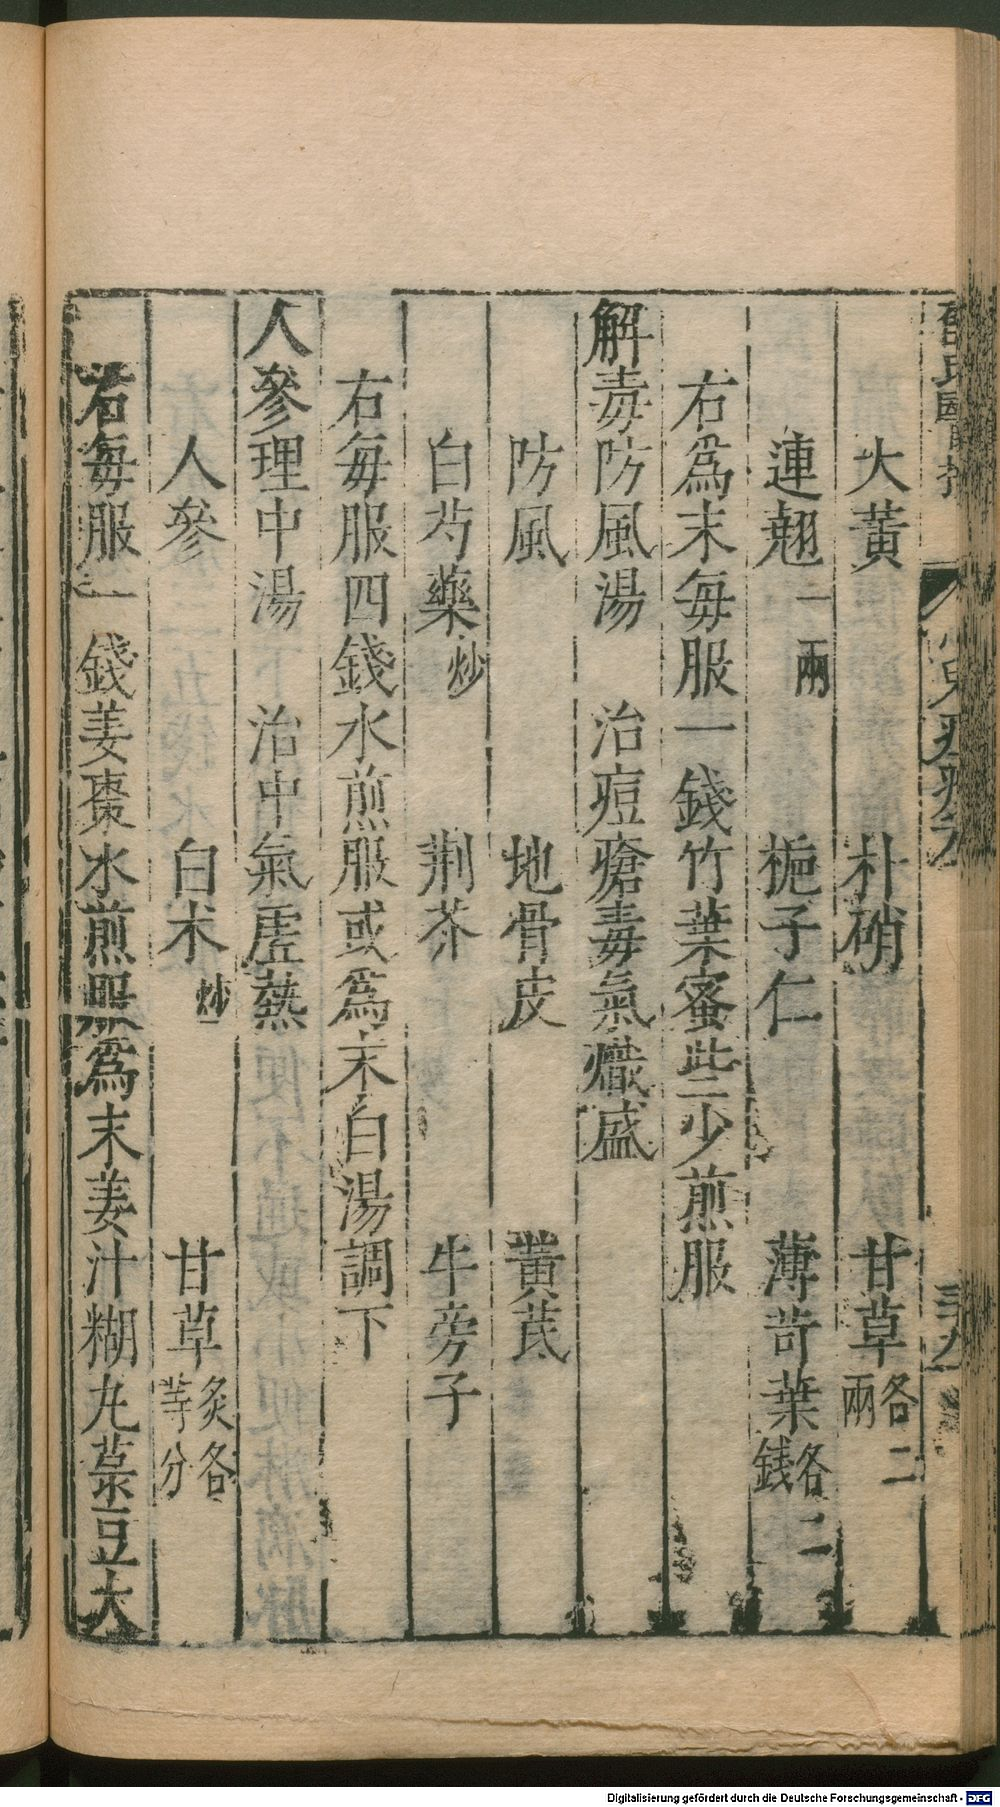 大黃　朴硝　甘草各二兩
連翹一兩　梔子仁　薄苛葉各二錢
右爲末每服一錢竹葉蜜些少煎服
解毒防風湯　治痘瘡毒氣熾盛
防風　地骨皮　黃芪
白芍藥炒　荆芥　牛旁子
右每服四錢水煎服或爲末白湯調下
人參理中湯　治中氣虛熱
人參　白朮炒　甘草炙各等分
右每服一錢姜棗水煎或爲末姜汁糊丸菉豆大
Digitalisierung gefördert durch die Deutsche Forschungsgemeinschaft - DFG